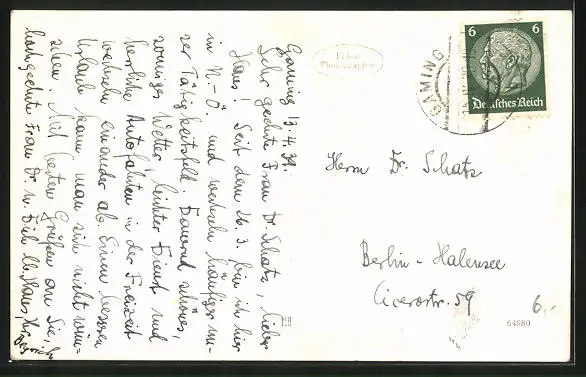 Gaming 13.4.39.
Sehr geehrte Frau Dr. Schatz, lieber
Hans! Seit dem 26.3. bin ich hier
in N.-Ö und wechseln häufiger un-
ser Tätigkeitsfeld. Dauernd schönes,
sonniges Wetter, leichter Dienst und
herrliche Autofahrten in der Freizeit
wechseln einander ab. Einen besseren
Urlaub kann man sich nicht wün-
schen. Mit besten Grüßen an Sie,
hochgeehrte Frau Dr. u. Dich lb. Hans Ihr
Echte
Photographie
GAMING
6 6
Deutsches Reich
Herrn Dr. Schatz
Berlin-Halensee
Cicerostr. 59
6,-
64880